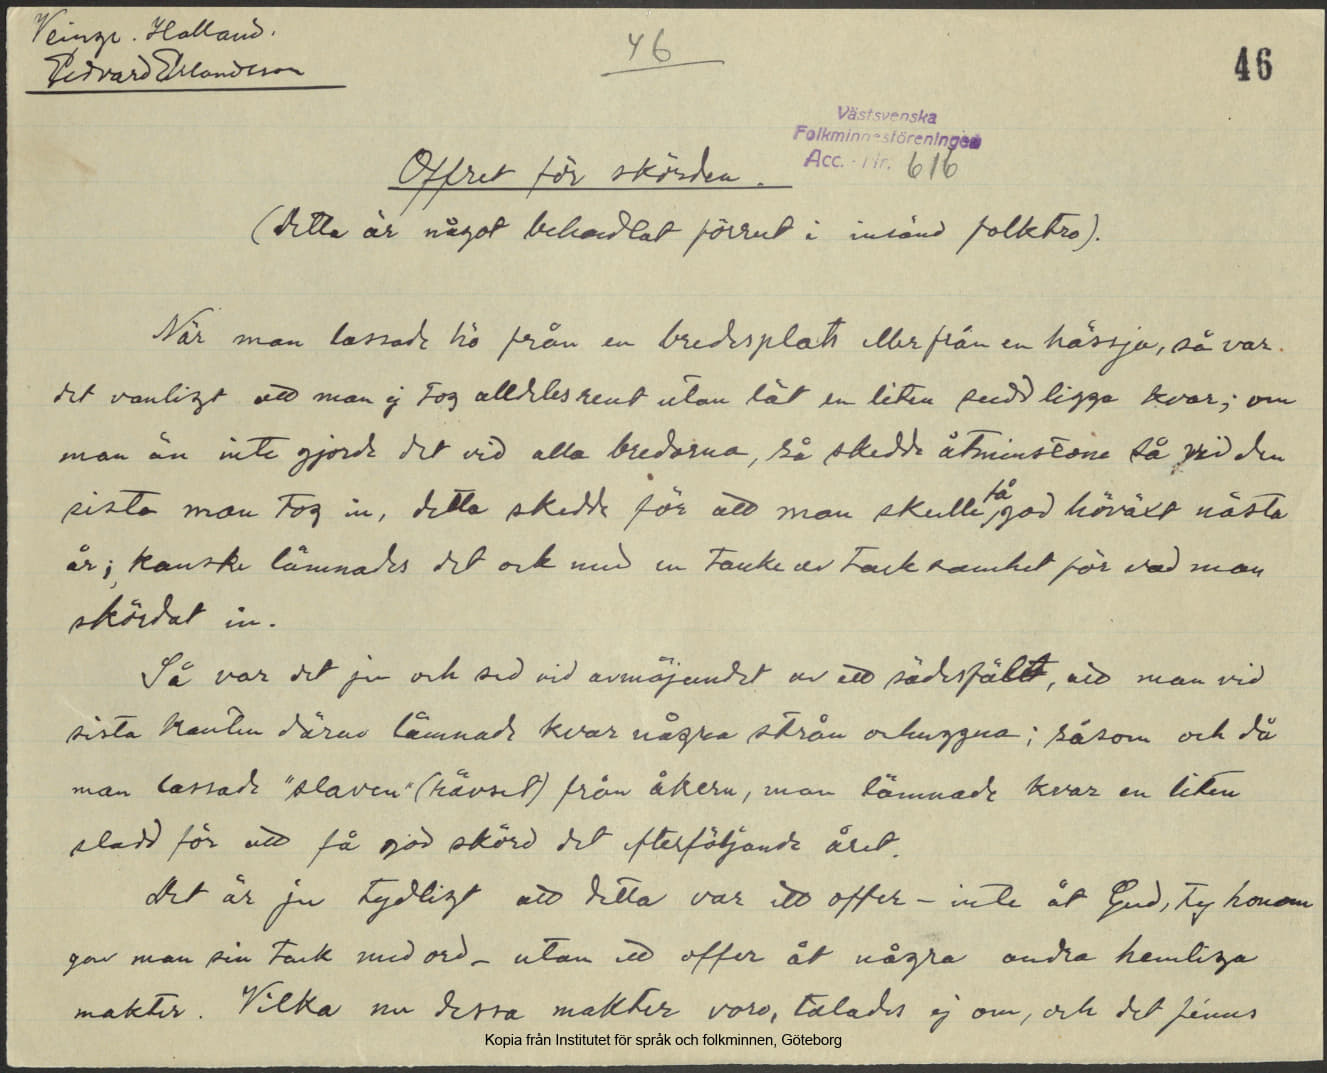 Veinge. Halland.
Edvard Erlandsson
46
46
Västsvenska
Folkminnesföreningen
Acc. - Nr. 616
Offret för skörden.
(detta är något behandlat förrut i insänd folktro).
När man lassade hö från en bredesplats eller från en hässja, så var
det vanligt att man ej tog alldeles rent utan lät en liten sudd ligga kvar; om
man än inte gjorde det vid alla bredorna, så skedde åtminstone så vid den
sista man tog in, detta skedde för att man skulle få god höväxt nästa
år; kanske lämnades det ock med en tanke av tacksamhet för vad man
skördat in.
Så var det ju och sed vid avmäjandet av ett sädesfält, att man vid
sista kanten därav lämnade kvar några strån ohuggna; såsom och då
man lassade "slaven" (hävset) från åkern, man lämnade kvar en liten
sladd för att få god skörd det efterföljande året.
Det är ju tydligt att detta var ett offer – inte åt Gud, ty honom
gav man sin tack med ord – utan ett offer åt några andra hemliga
makter. Vilka nu dessa makter voro, talades ej om, och det finns
Kopia från Institutet för språk och folkminnen, Göteborg